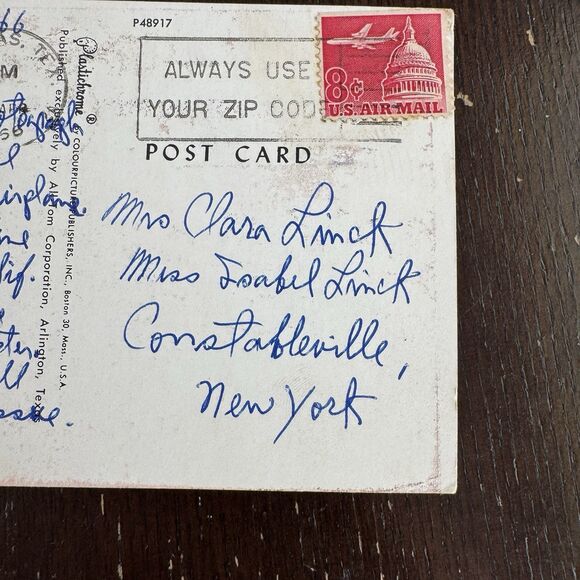 66
P48917
AS, TEX
M
66
ALWAYS USE
YOUR ZIP CODE
8¢
U.S. AIR MAIL
POST CARD
Plastichrome ® by COLOURPICTURE PUBLISHERS, INC., Boston 30, Mass., U.S.A.
Published exclusively by All-Tom Corporation, Arlington, Texas
Mrs Clara Linck
Miss Isabel Linck
Constableville,
New York
airplane
lif.
ll